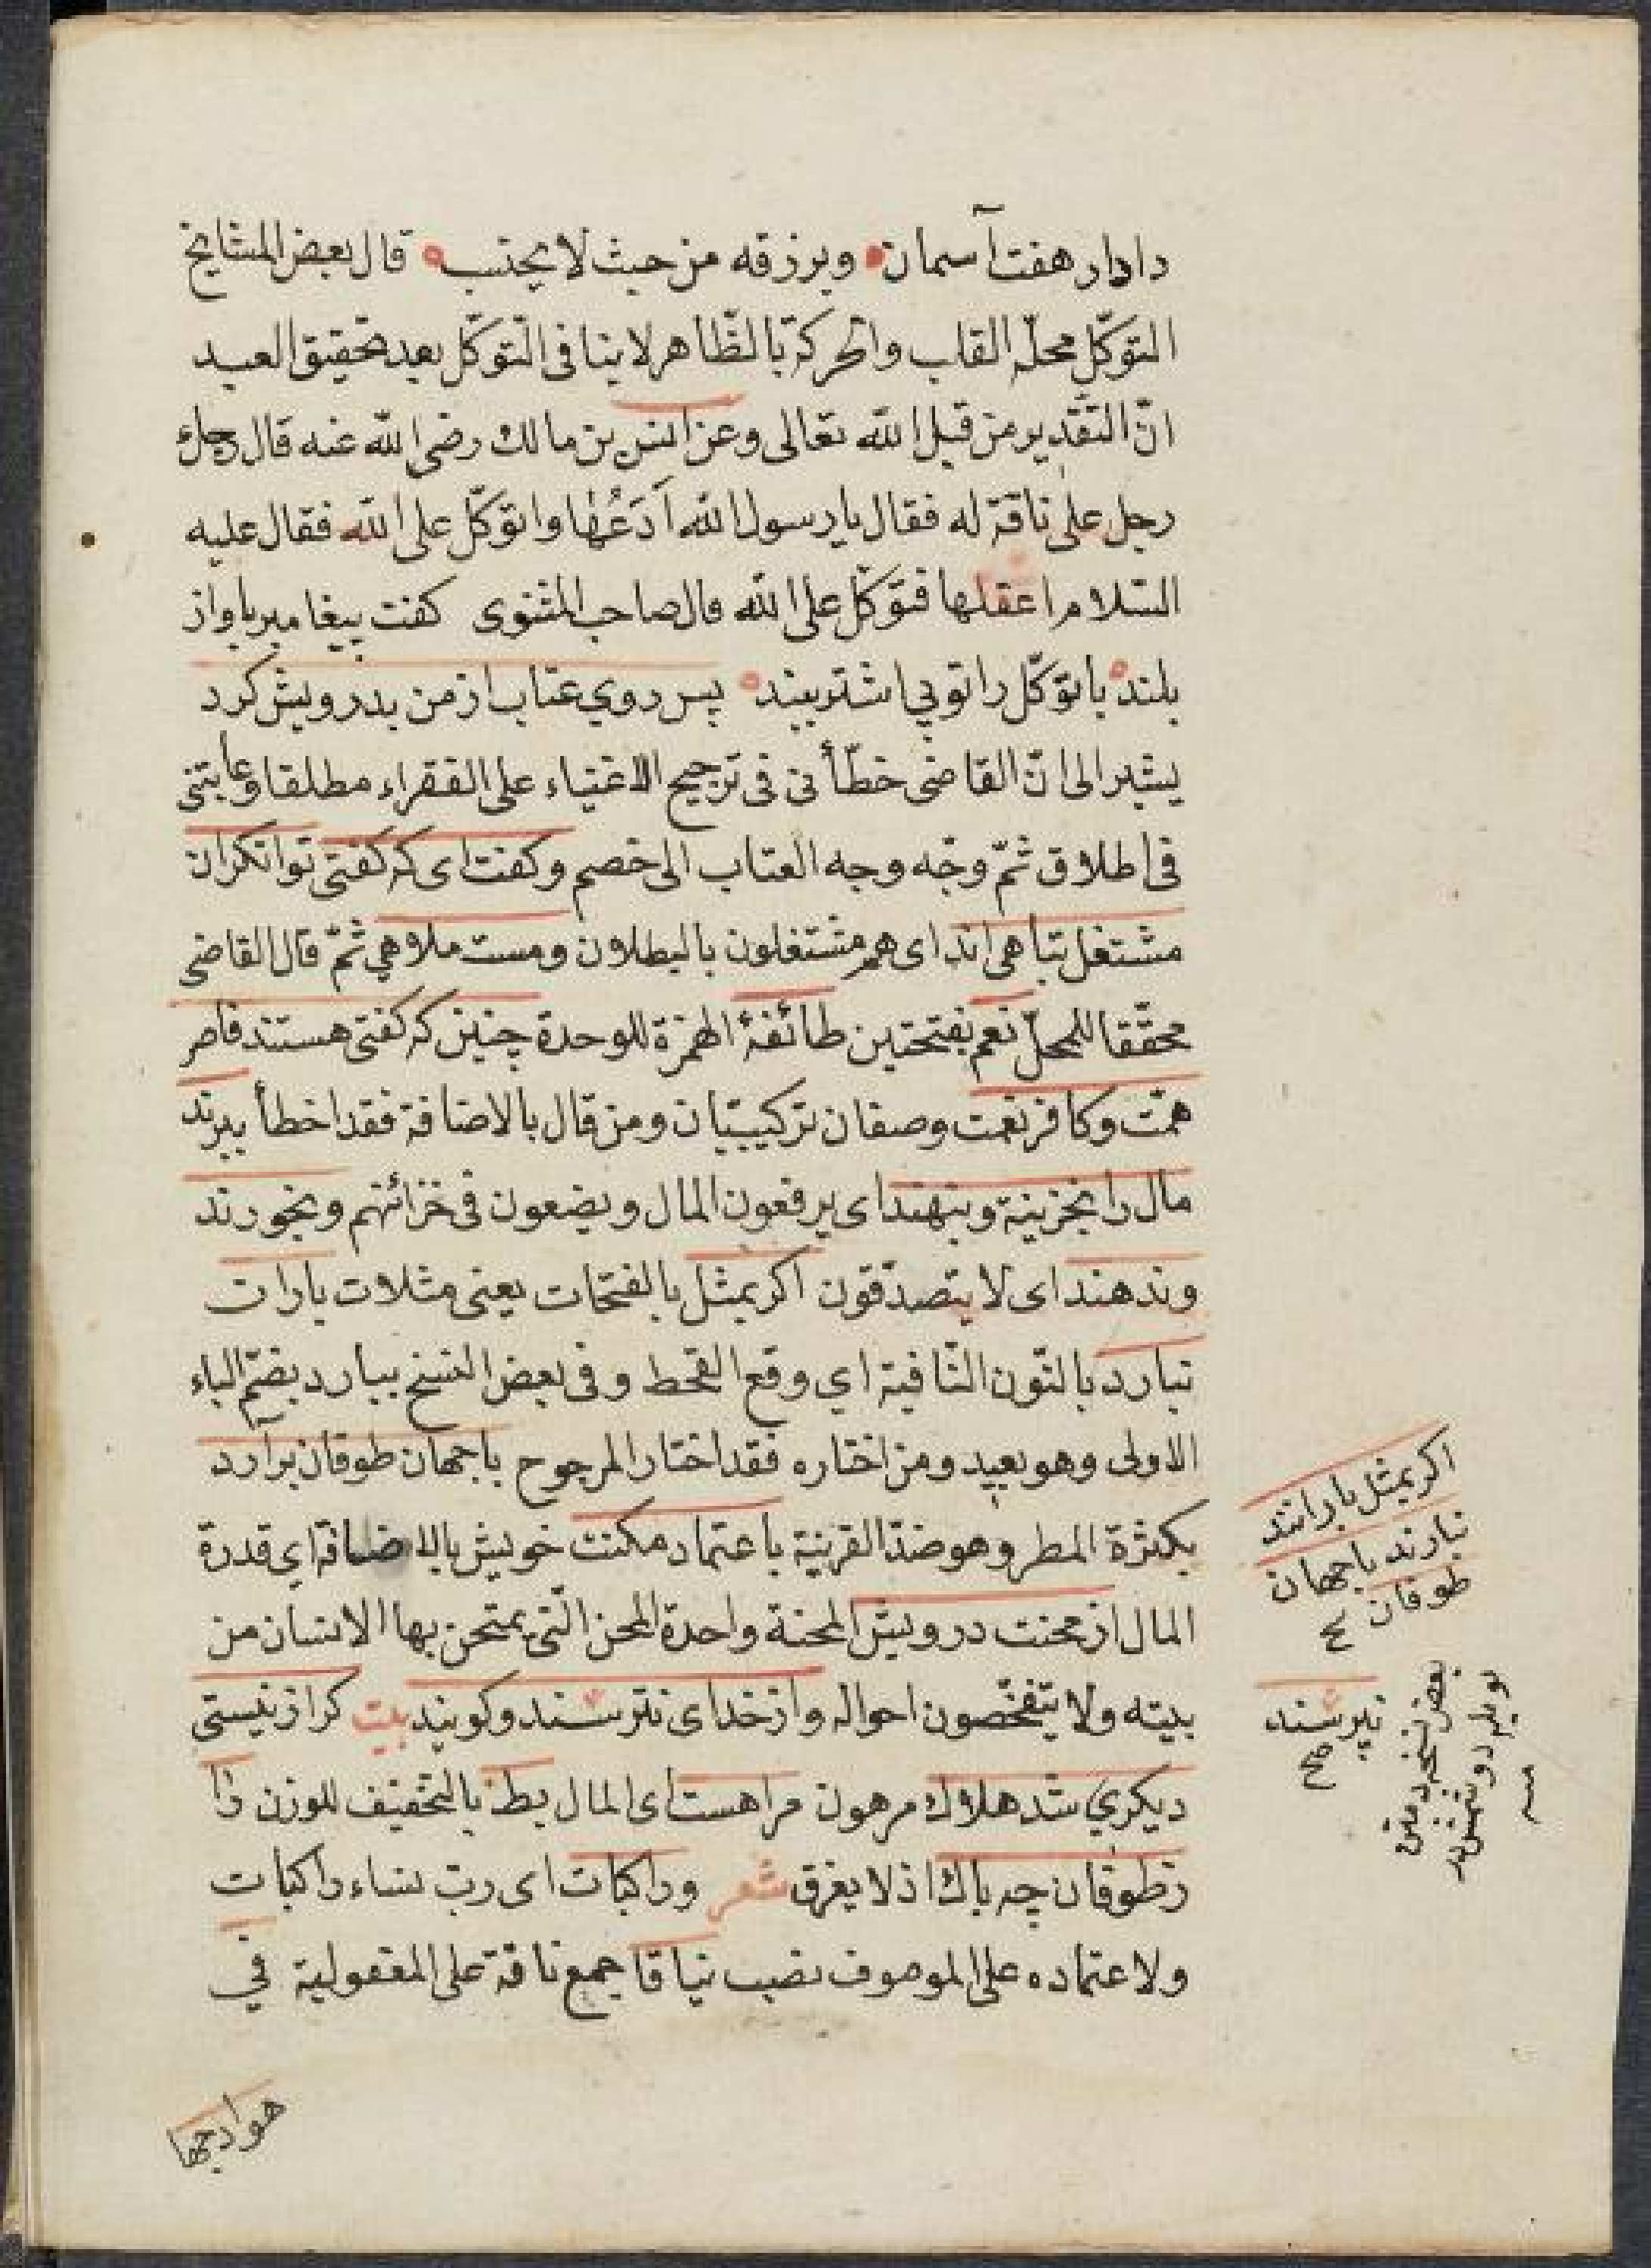 دادار هفت آسمان ويرزقه من حيث لا يحتسب قال بعض المشايخ
التوكّل محلّه القلب والحركة بالظّاهر لا ينافى التوكّل بعد تحقيق العبد
انّ التقدير من قبل الله تعالى وعن انس بن مالك رضى الله عنه قال جاء
رجل على ناقة له فقال يا رسول الله اَدَعُها واتوكّل على الله فقال عليه
السّلام اعقلها فتوكّل على الله قال صاحب المثنوى كفت پيغامبر باواز
بلند با توكّل زانوى اشتر ببند پس روي عتاب از من بدرويش كرد
يشير الى انّ القاضى خطّأنى فى ترجيح الاغنياء على الفقراء مطلقا وعاتبنى
فى اطلاق ثمّ وجّه وجه العتاب الى خصم وكفت اى كه كفتى توانكران
مشتغل تباهى اند اى هم مشتغلون بالبطلان ومست ملاهي ثمّ قال القاضى
محقّقا للمحلّ نعم بفتحتين طائفهٔ الهمزة للوحدة چنين كه كفتى هستند قاصر
همّت وكافر نعمت وصفان تركيبيّان ومن قال بالاضافة فقد اخطأ ببرند
مال را بخزينة وبنهند اى يرفعون المال ويضعون فى خزائنهم ونخورند
وندهند اى لا يتصدّقون اكر بمثل بالفتحات يعنى مثلات باران
نبارد بالنّون النّافية اي وقع القحط وفى بعض النسخ ببارد بضمّ الباء
الاولى وهو بعيد ومن اختاره فقد اختار المرجوح يا جهان طوفان برآرد
بكثرة المطر وهو ضدّ القرينة باعتماد مكنت خويش بالاضافة اى قدرة
المال از محنت درويش المحنة واحدة المحن الّتى يمتحن بها الانسان من
بيته ولا يتفخّصون احواله واز خداى نترسند وكويند بيت كر از نيستى
ديكري شد هلاك مرهون مراهست اى المال بط بالتخفيف للوزن را
زطوفان چه باك اذ لا يغرق شعر وراكبات اى ربّ نساء راكبات
ولاعتماده على الموصوف نصب نياقا جمع ناقة على المفعولية في
هوادجها
اكر بمثل باران
نبارند يا جهان
طوفان
نپرسند
صح
بعض نسخه